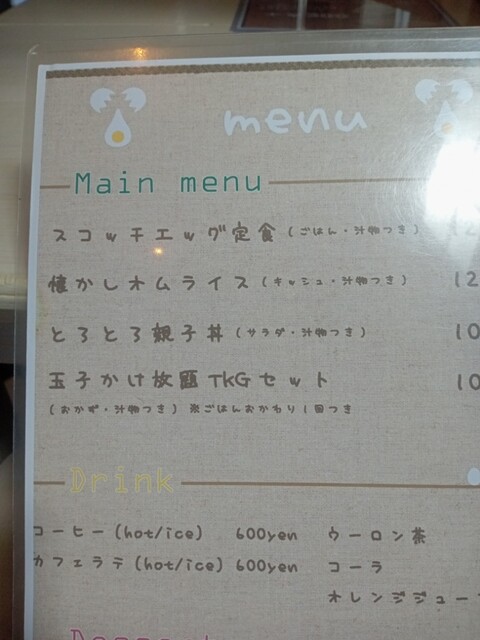 menu
Main menu
スコッチエッグ定食(ごはん・汁物つき)
懐かしオムライス(キッシュ・汁物つき) 12
とろとろ親子丼(サラダ・汁物つき) 10
玉子かけ放題TKGセット 10
(おかず・汁物つき) ※ごはんおかわり1回つき
Drink
コーヒー(hot/ice) 600yen ウーロン茶
カフェラテ(hot/ice) 600yen コーラ
オレンジジュー